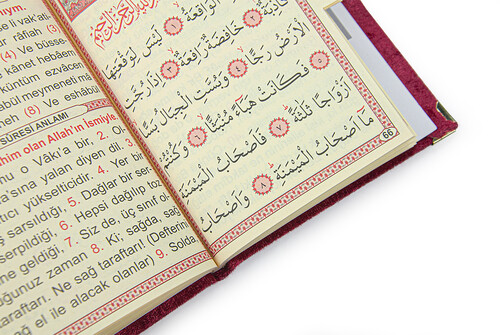 ıyım.
li vak'ati-
râfiah (3)
(4) Ve büsse-
kânet hebâem
küntüm ezvâcen
bülmeymeneti mâ
(8) Ve eshâbü
SÛRESİ ANLAMI
him olan Allah'ın ismiyle
u o Vâkı'a bir, 2. O-
tına yalan diyen dil.
tıcı yükselticidir. 4. Yer bir
sarsıldığı, 5. Dağlar bir ser-
serpildiği. 6. Hepsi dağılıp toz
ne geldiği. 7. Siz de, üç sınıf ol-
duğunuz zaman 8. Ki; sağda, sağ
taraftarı! Ne sağ taraftarı! (Defterini
ağ el ile alacak olanlar) 9. Solda,
لَيْسَ لِوَقْعَتِهَا
كَاذِبَةٌ ﴿٢﴾ خَافِضَةٌ رَافِعَةٌ ﴿٣﴾ اِذَا رُجَّتِ
الْاَرْضُ رَجًّا ﴿٤﴾ وَبُسَّتِ الْجِبَالُ بَسًّا ﴿٥﴾
فَكَانَتْ هَبَٓاءً مُنْبَثًّا ﴿٦﴾ وَكُنْتُمْ
اَزْوَاجًا ثَلٰثَةً ﴿٧﴾ فَاَصْحَابُ الْمَيْمَنَةِ
مَٓا اَصْحَابُ الْمَيْمَنَةِ ﴿٨﴾ وَاَصْحَابُ
66